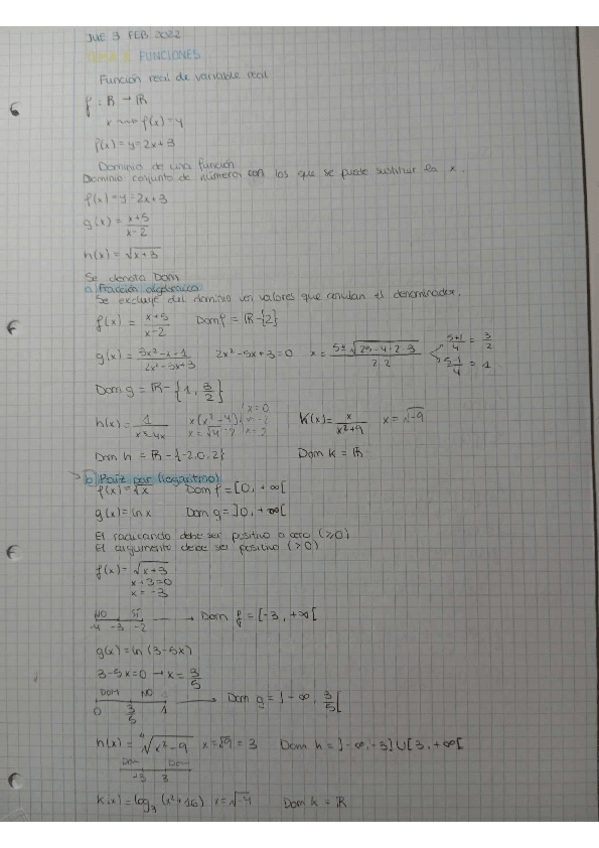 JUE 3 FEB 2022
TEMA FUNCIONES
Función real de variable real
f: R → R
x ⟿ f(x)=y
f(x)=y=2x+3
Dominio de una función
Dominio conjunto de números con los que se puede sustituir la x.
f(x)=y=2x+3
g(x) = (x+5)/(x-2)
h(x) = √(x+3)
Se denota Dom
a) Fracción algebraica
Se excluye del dominio los valores que anulan el denominador.
f(x) = (x+5)/(x-2) Dom f = R-{2}
g(x) = (3x²-x-1)/(2x²-5x+3) 2x²-5x+3=0 x = (5±√(25-4·2·3))/(2·2) (5+1)/4 = 3/2 (5-1)/4 = 1
Dom g = R-{1, 3/2}
h(x) = 1/(x³-4x) x(x²-4) x=0 x=√4 x=2 x=-2 K(x) = x/(x²+9) x=√-9
Dom h = R-{-2,0,2} Dom k = R
b) Raíz par (logaritmo)
f(x)=√x Dom f=[0,+∞[
g(x)=ln x Dom g=]0,+∞[
El radicando debe ser positivo o cero (≥0)
El argumento debe ser positivo (>0)
f(x)=√(x+3)
x+3=0
x=-3
NO SÍ
-4 -3 -2 → Dom f = [-3, +∞[
g(x)=ln (3-5x)
3-5x=0 → x = 3/5
DOM NO
0 3/5 1 → Dom g = ]-∞, 3/5[
h(x) = √(x²-9) x=√9=3 Dom h = ]-∞,-3]U[3,+∞[
Dom Dom
-3 3
k(x)=log₃ (x²+16) x=√-4 Dom k = R